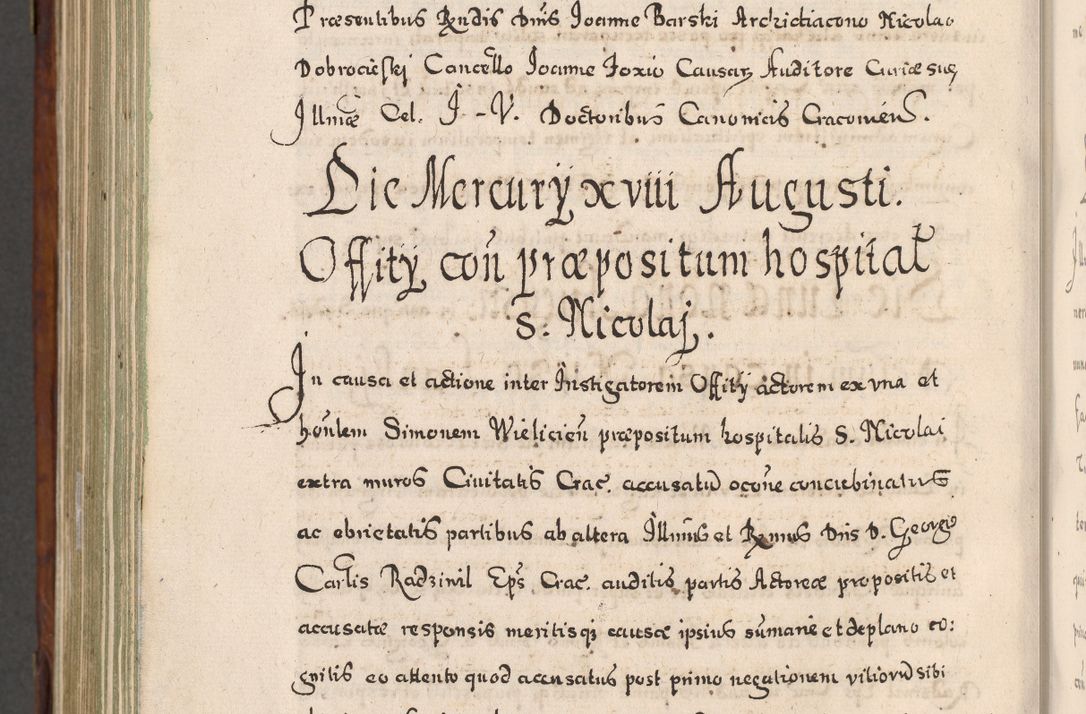 Præsentibus Rndis Dnis Joanne Barski Archidiacono Nicolao
Dobrocieski Cancello Joanne Foxio Causarz Auditore Curiæ suę
Illmæ Cel. J. - V. Doctoribus Canonicis Cracovień.
Die Mercurÿ xviii Augusti.
Offitÿ coñ præpositum hospital
S. Nicolaj.
In causa et actione inter Instigatorem Offitÿ actorem ex vna et
hoñlem Simonem Wielicień præpositum hospitalis S. Nicolai
extra muros Civitatis Crac. accusatū ocoñe concubinatus
ac ebrietatis partibus ab altera Illmus et Rxmus Dnis D. Georgi
Carlis Radzivil Eps Crac. auditis partis Actoreæ propositis et
accusatæ responsis meritisq causæ ipsius sūmarie et de plano co:
gnitis eo attento quod accusatus post primo negationem vitiorū sibi